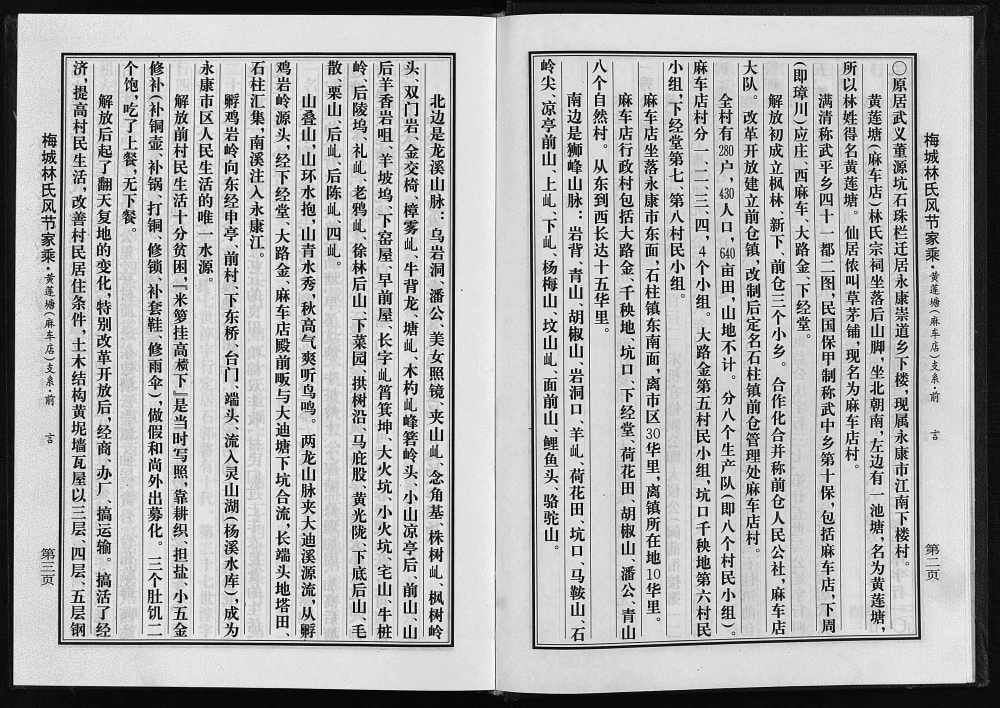 梅城林氏风节家乘·黄莲塘（麻车店）支系·前言
第二页
○原居武义董源坑石珠栏迁居永康崇道乡下楼，现属永康市江南下楼村。
黄莲塘（麻车店）林氏宗祠坐落后山脚，坐北朝南，左边有一池塘，名为黄莲塘，
所以林姓得名黄莲塘。仙居侬叫草茅铺，现名为麻车店村。
满清称武平乡四十一都二图，民国保甲制称武中乡第十保，包括麻车店，下周
（即璋川）应庄、西麻车、大路金、下经堂。
解放初成立枫林、新下、前仓三个小乡。合作化合并称前仓人民公社，麻车店
大队。改革开放建立前仓镇，改制后定名石柱镇前仓管理处麻车店村。
全村有280户，430人口，640亩田，山地不计。分八个生产队（即八个村民小组）。
麻车店村分一、二、三、四，4个小组。大路金第五村民小组，坑口千秧地第六村民
小组，下经堂第七、第八村民小组。
麻车店坐落永康市东面，石柱镇东南面，离市区30华里，离镇所在地10华里。
麻车店行政村包括大路金、千秧地、坑口、下经堂、荷花田、胡椒山、潘公、青山
八个自然村。从东到西长达十五华里。
南边是狮峰山脉：岩背、青山、胡椒山、岩洞口、羊乢、荷花田、坑口、马鞍山、石
岭尖、凉亭前山、上乢、下乢、杨梅山、坟山乢、面前山、鲤鱼头、骆驼山。
北边是龙溪山脉：乌岩洞、潘公、美女照镜、夹山乢、念角基、株树乢、枫树岭
头、双门岩、金交椅、樟雾乢、牛背龙、塘乢、木杓乢峰箬岭头、小山凉亭后、前山、山
后羊香岩咀、羊坡坞、下窑屋、早前屋、长字乢筲箕坤、大火坑、小火坑、宅山、牛桩
岭、后陵坞、礼乢、老鸦乢、徐林后山、下菜园、拱树沿、马庇股、黄光陇、下底后山、毛
散、栗山、后乢、后陈乢、四乢。
山叠山，山环水抱，山青水秀，秋高气爽听鸟鸣。两龙山脉夹大迪溪源流，从孵
鸡岩岭源头，经下经堂、大路金、麻车店殿前畈与大迪塘下坑合流，长端头地塔田、
石柱汇集，南溪注入永康江。
孵鸡岩岭向东经申亭、前村、下东桥、台门、端头、流入灵山湖（杨溪水库），成为
永康市区人民生活的唯一水源。
解放前村民生活十分贫困，『米箩挂高横下』是当时写照，靠耕织、担盐、小五金
修补（补铜壶、补锅、打铜、修锁、补套鞋、修雨伞），做假和尚外出募化。三个肚饥二
个饱，吃了上餐，无下餐。
解放后起了翻天复地的变化，特别改革开放后，经商、办厂、搞运输。搞活了经
济，提高村民生活，改善村民居住条件，土木结构黄坭墙瓦屋以三层、四层、五层钢
梅城林氏风节家乘·黄莲塘（麻车店）支系·前言
第三页